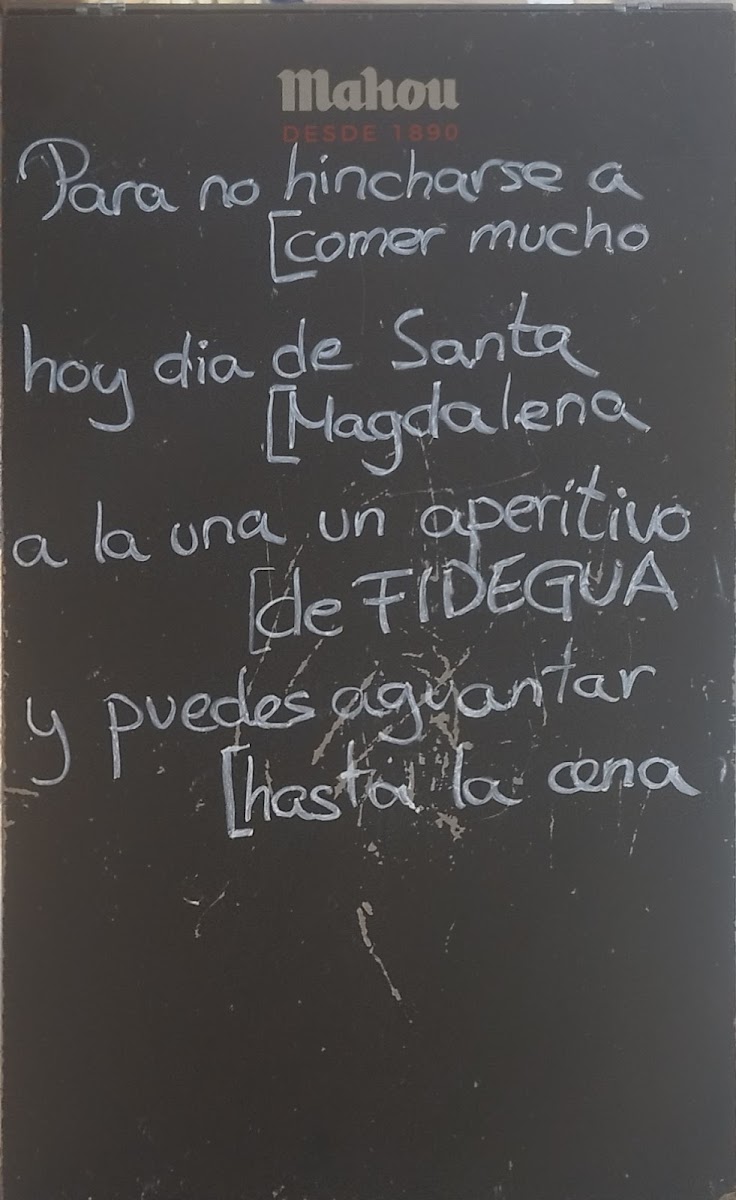 Mahou
DESDE 1890
Para no hincharse a
[comer mucho
hoy dia de Santa
[Magdalena
a la una un aperitivo
[de FIDEGUA
y puedes aguantar
[hasta la cena